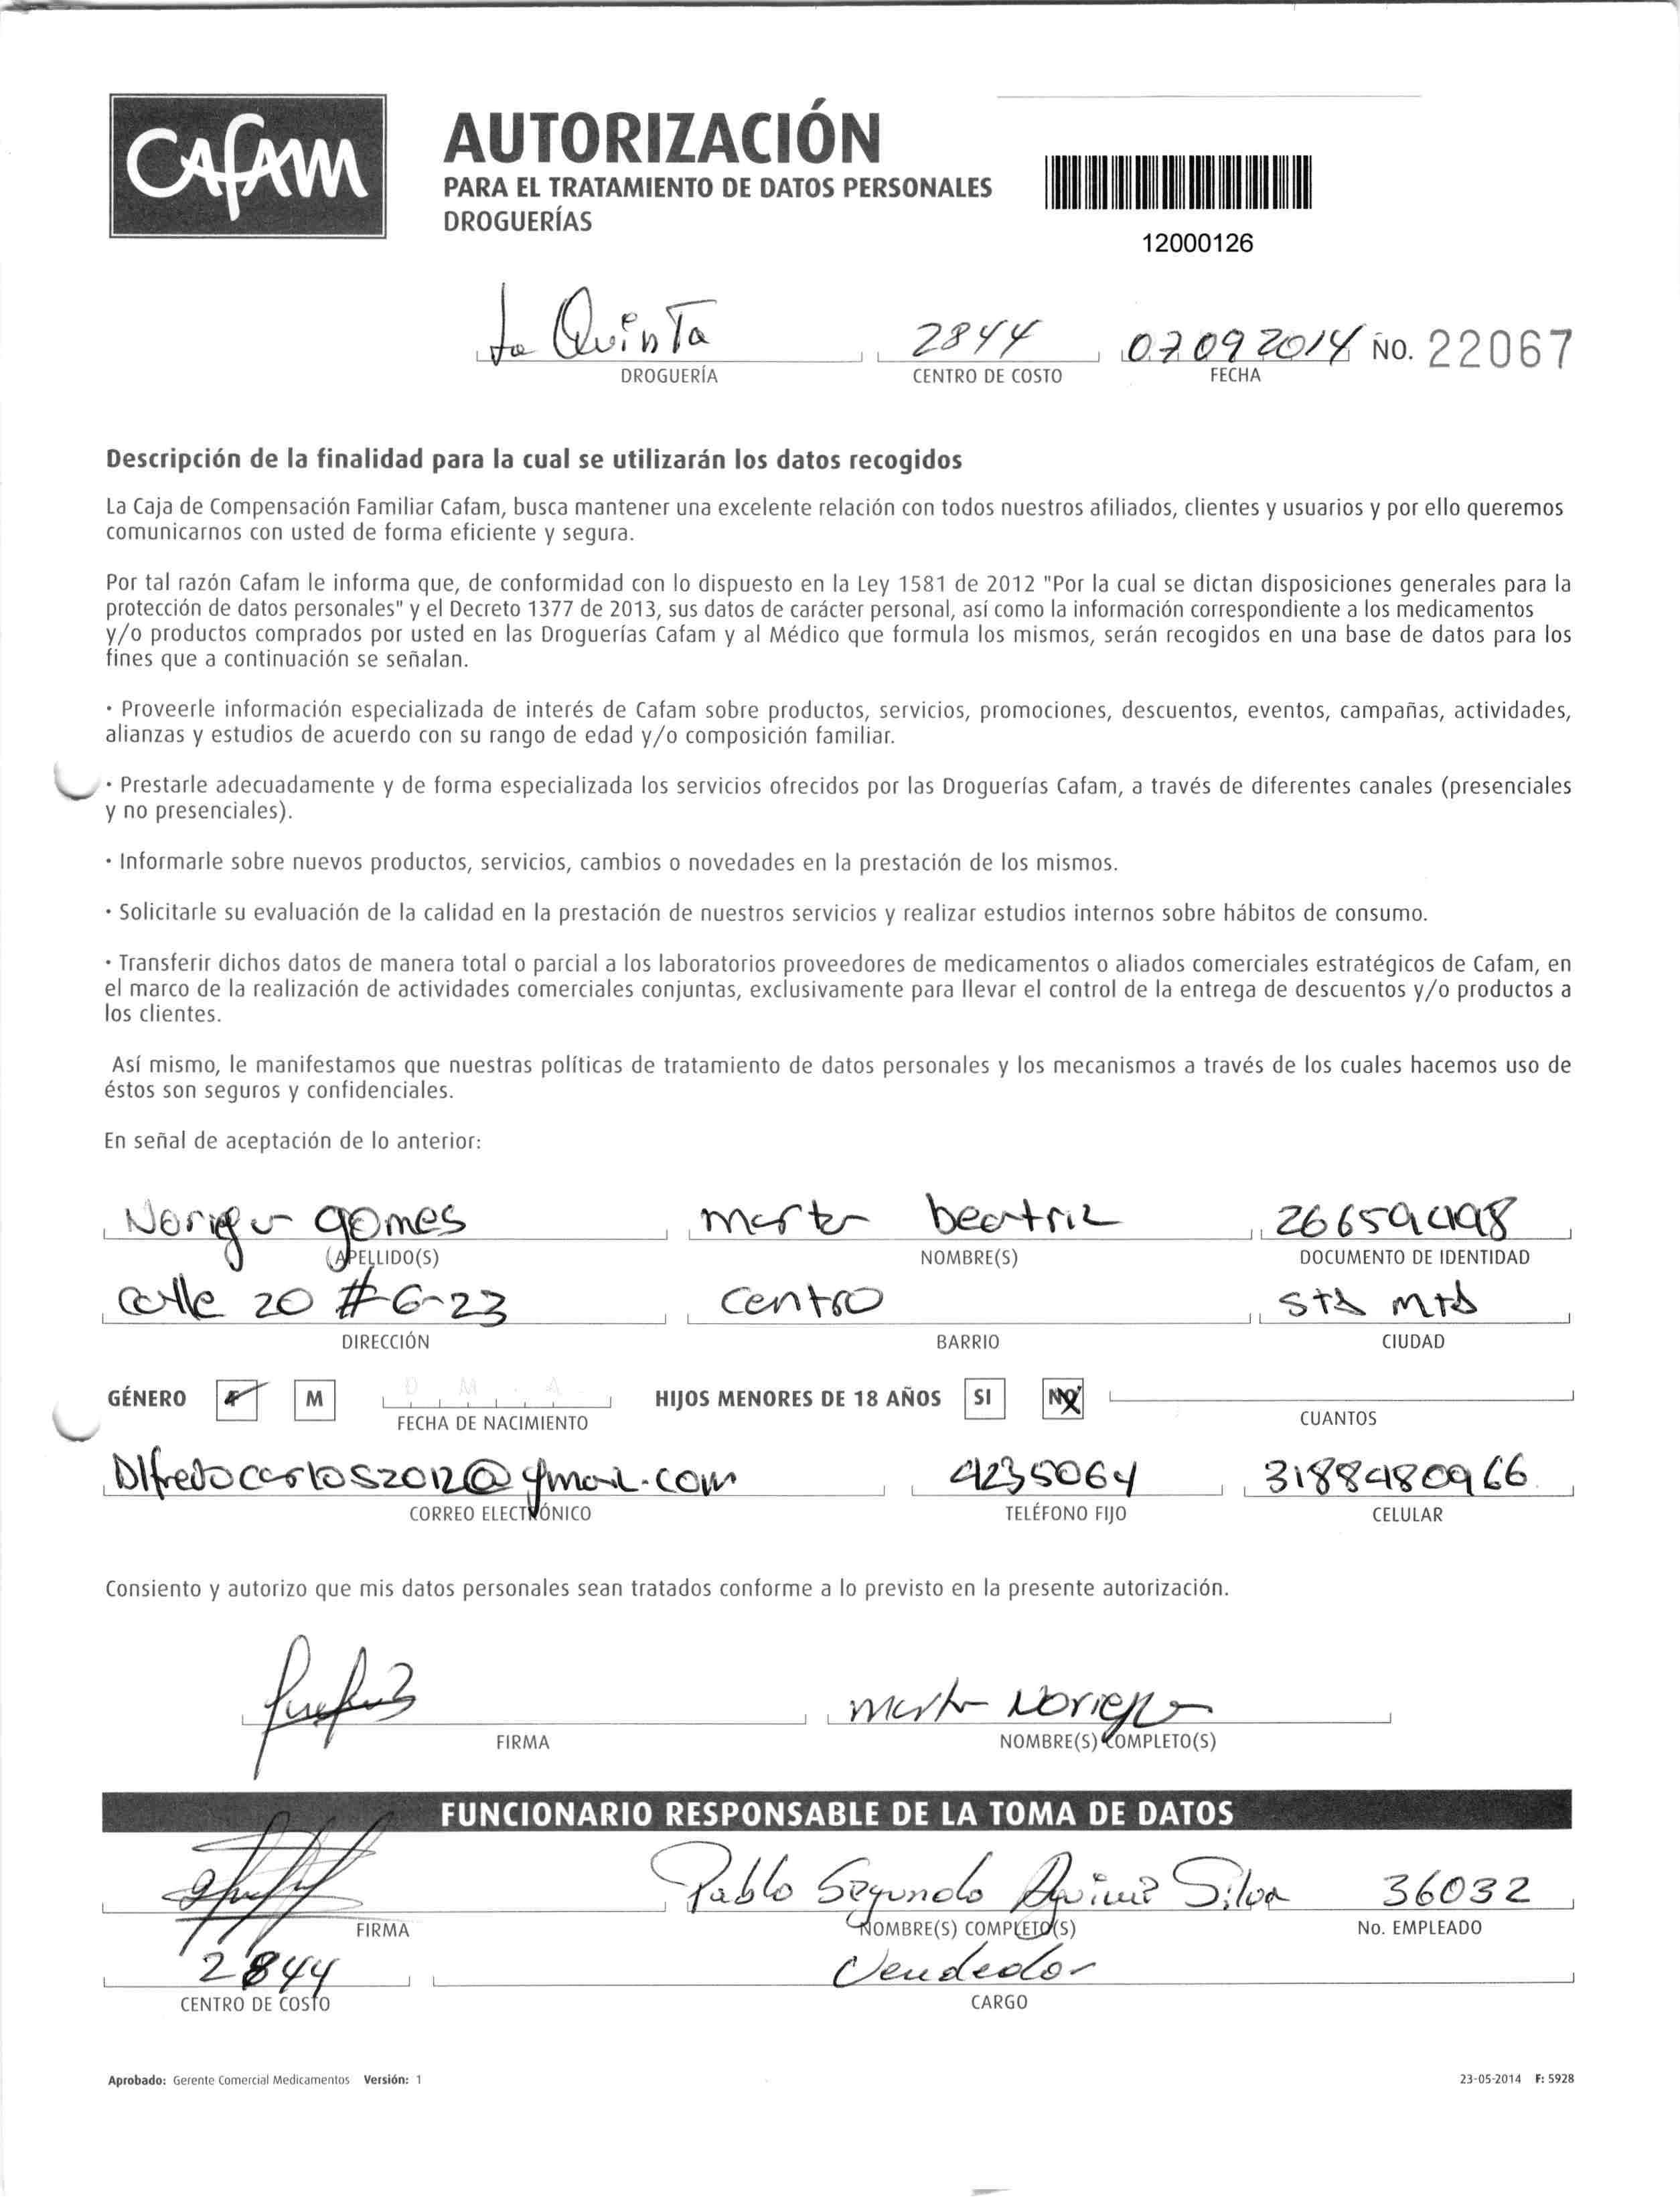 CAFAM
AUTORIZACIÓN
PARA EL TRATAMIENTO DE DATOS PERSONALES
DROGUERÍAS
12000126
La Quinta 2844 07 09 2014 NO. 22067
DROGUERÍA CENTRO DE COSTO FECHA
Descripción de la finalidad para la cual se utilizarán los datos recogidos
La Caja de Compensación Familiar Cafam, busca mantener una excelente relación con todos nuestros afiliados, clientes y usuarios y por ello queremos
comunicarnos con usted de forma eficiente y segura.
Por tal razón Cafam le informa que, de conformidad con lo dispuesto en la Ley 1581 de 2012 "Por la cual se dictan disposiciones generales para la
protección de datos personales" y el Decreto 1377 de 2013, sus datos de carácter personal, así como la información correspondiente a los medicamentos
y/o productos comprados por usted en las Droguerías Cafam y al Médico que formula los mismos, serán recogidos en una base de datos para los
fines que a continuación se señalan.
· Proveerle información especializada de interés de Cafam sobre productos, servicios, promociones, descuentos, eventos, campañas, actividades,
alianzas y estudios de acuerdo con su rango de edad y/o composición familiar.
· Prestarle adecuadamente y de forma especializada los servicios ofrecidos por las Droguerías Cafam, a través de diferentes canales (presenciales
y no presenciales).
· Informarle sobre nuevos productos, servicios, cambios o novedades en la prestación de los mismos.
· Solicitarle su evaluación de la calidad en la prestación de nuestros servicios y realizar estudios internos sobre hábitos de consumo.
· Transferir dichos datos de manera total o parcial a los laboratorios proveedores de medicamentos o aliados comerciales estratégicos de Cafam, en
el marco de la realización de actividades comerciales conjuntas, exclusivamente para llevar el control de la entrega de descuentos y/o productos a
los clientes.
Así mismo, le manifestamos que nuestras políticas de tratamiento de datos personales y los mecanismos a través de los cuales hacemos uso de
éstos son seguros y confidenciales.
En señal de aceptación de lo anterior:
Noriega gomes marta beatriz
(APELLIDO(S) NOMBRE(S) DOCUMENTO DE IDENTIDAD
calle 20 #6-23 centro sta mta
DIRECCIÓN BARRIO CIUDAD
GÉNERO F M D M A HIJOS MENORES DE 18 AÑOS SI NO
FECHA DE NACIMIENTO CUANTOS
Alfredocarlos2012@gmail.com 4235064 3188480966
CORREO ELECTRÓNICO TELÉFONO FIJO CELULAR
Consiento y autorizo que mis datos personales sean tratados conforme a lo previsto en la presente autorización.
marta Noriega
FIRMA NOMBRE(S) COMPLETO(S)
FUNCIONARIO RESPONSABLE DE LA TOMA DE DATOS
Pablo Segundo Silva 36032
FIRMA NOMBRE(S) COMPLETO(S) No. EMPLEADO
2844 Vendedor
CENTRO DE COSTO CARGO
Aprobado: Gerente Comercial Medicamentos Versión: 1 23-05-2014 F: 5928